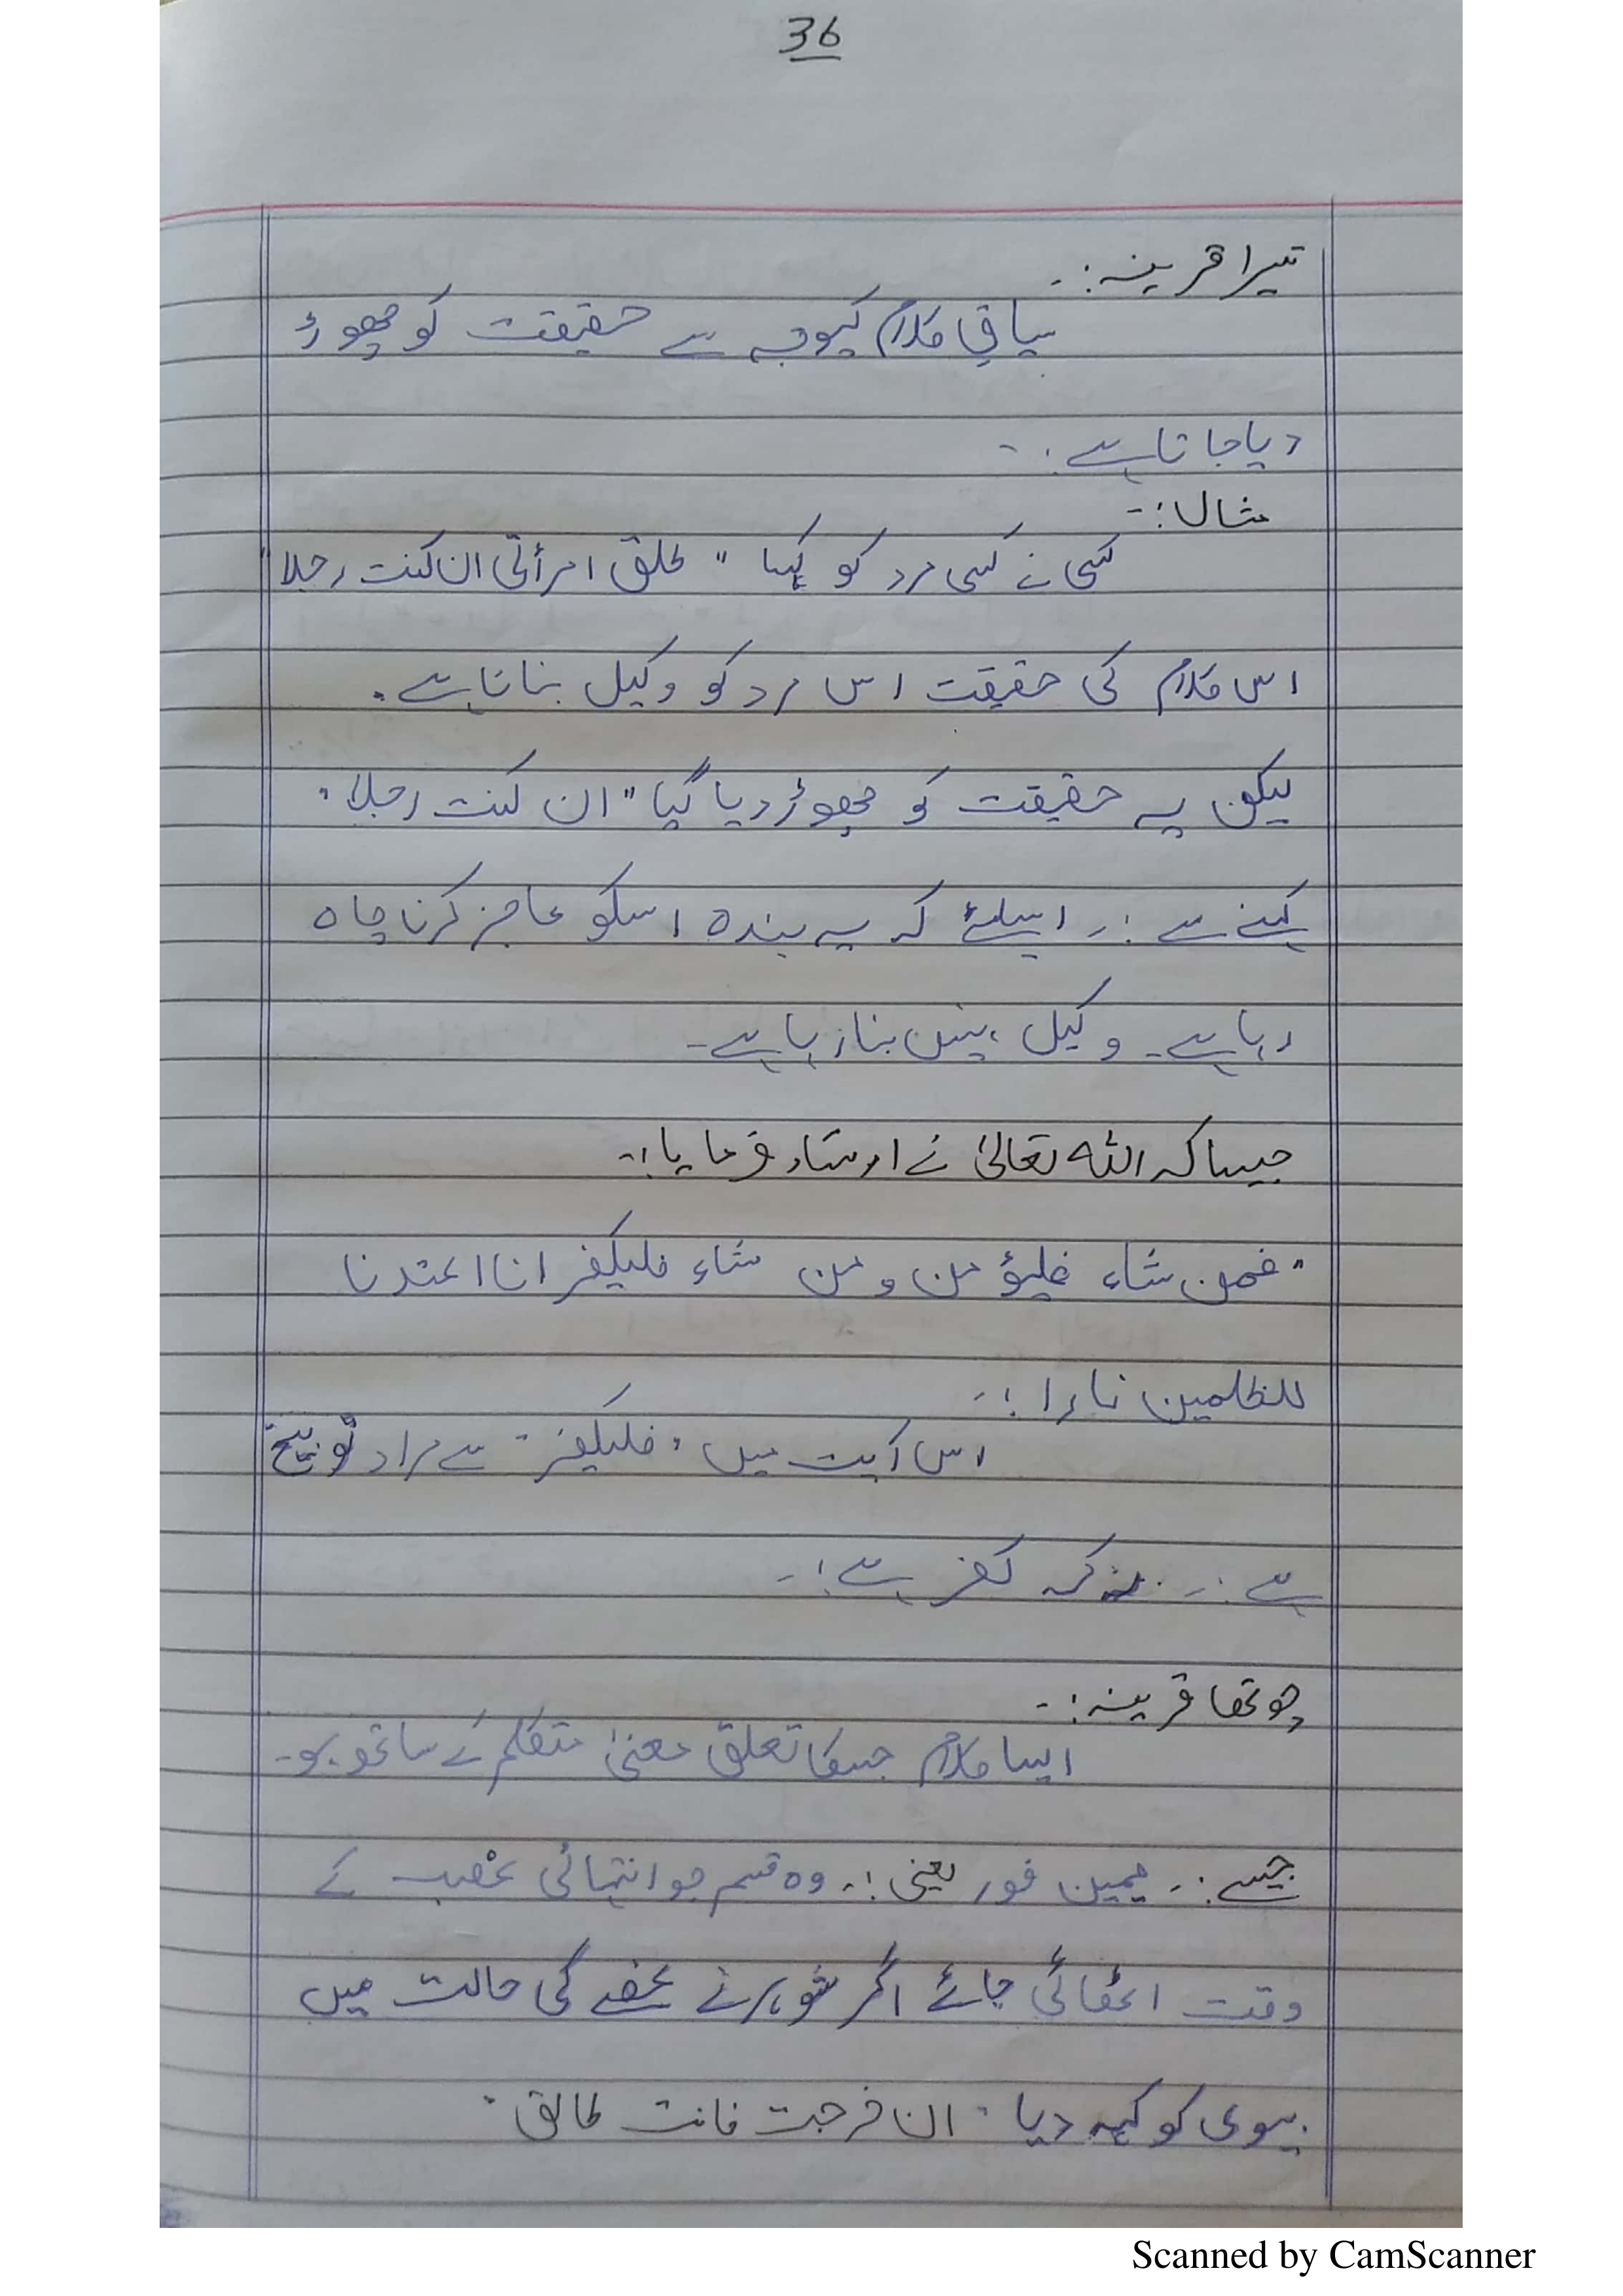 36
تیسرا قرینہ:-
سیاق کلام کیوجہ سے حقیقت کو چھوڑ
دیا جاتا ہے:-
مثال:-
کسی نے کسی مرد کو کہا "طلق امرأتی ان کنت رجلا"
اس کلام کی حقیقت اس مرد کو وکیل بنانا ہے۔
لیکن یہ حقیقت کو چھوڑ دیا گیا "ان کنت رجلا"
کہنے سے:- اسلئے کہ یہ بندہ اسکو عاجز کرنا چاہ
رہا ہے۔ وکیل نہیں بنا رہا ہے۔
جیسا کہ اللہ تعالیٰ نے ارشاد فرمایا:-
"فمن شاء فلیؤمن ومن شاء فلیکفر انا اعتدنا
للظلمین نارا:-
اس آیت میں "فلیکفر" سے مراد توبیخ
ہے:- نہ کہ کفر ہے:-
چوتھا قرینہ:-
ایسا کلام جسکا تعلق معنیٰ متکلم کے ساتھ ہو۔
جیسے:- یمین فور یعنی:- وہ قسم جو انتہائی غضب کے
وقت اٹھائی جائے اگر شوہر نے غصے کی حالت میں
بیوی کو کہہ دیا "ان خرجت فانت طالق"
Scanned by CamScanner